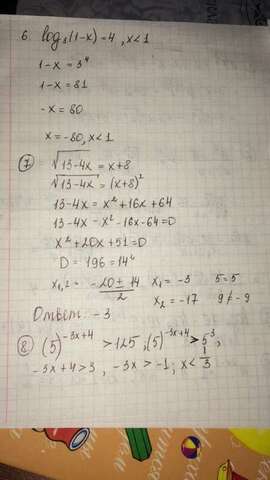 6. log₃(1-x)=4, x<1
1-x = 3⁴
1-x = 81
-x = 80
x = -80, x<1
7 √13-4x = x+8
√13-4x = (x+8)²
13-4x = x²+16x+64
13-4x-x²-16x-64=0
x²+20x+51=0
D = 196 = 14²
x₁,₂ = -20±14/2 x₁ = -3 5=5
x₂ = -17 9≠-9
Ответ: -3
8 (5)^-3x+4 > 125; (5)^-3x+4 > 5³;
-3x+4>3, -3x > -1; x < 1/3